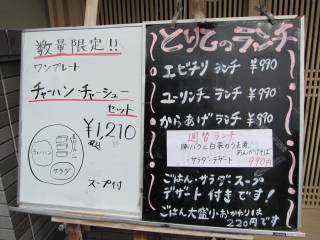 数量限定!!
ワンプレート
チャーハンチャーシュー
セット
¥1,210
税込
チャーハン
サラダ
スープ付
とりひのランチ
エビチリ ランチ ¥990
ユーリンチー ランチ ¥990
からあげ ランチ ¥990
週替ランチ
豚バラと白菜のうま煮
あんかけそば
サラダ・デザート 990円
ごはん・サラダ・スープ
デザート 付きです!
ごはん大盛り・おかわりは
220円です